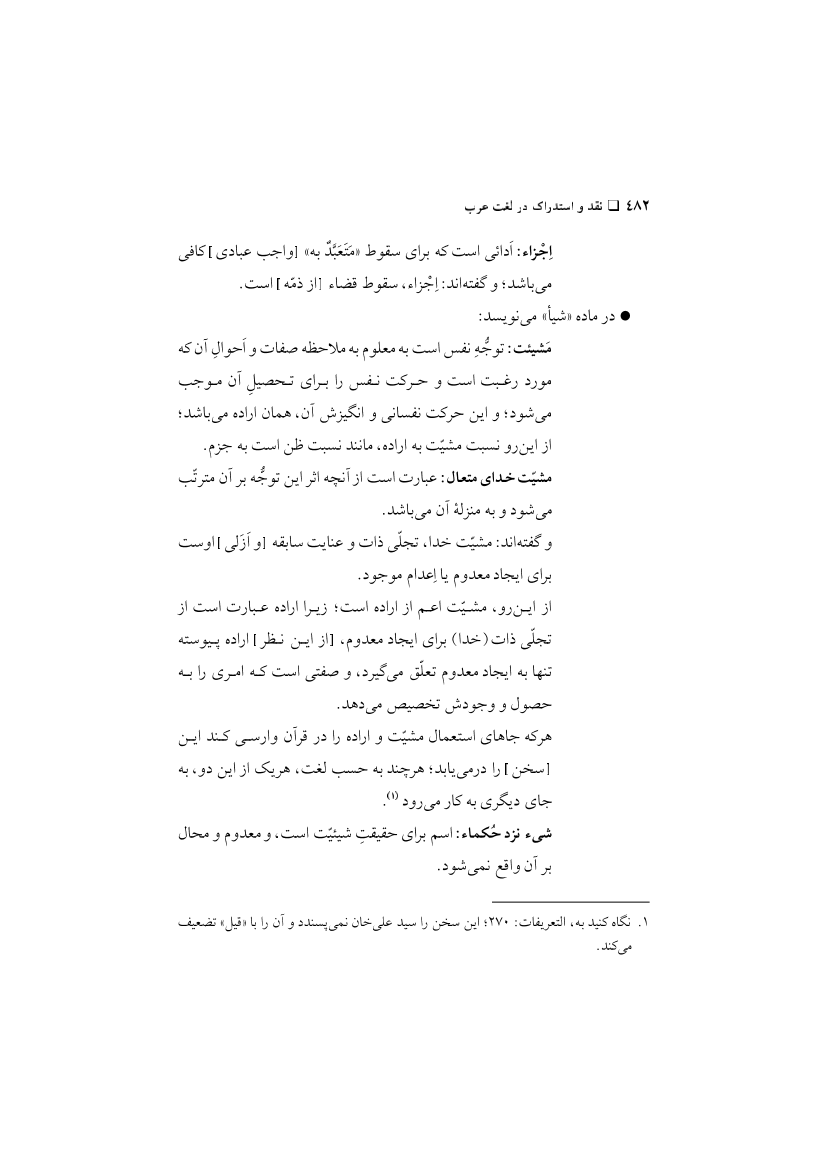 ٤٨٢ ❏ نقد و استدراک در لغت عرب
اِجْزاء: اَدائی است که برای سقوط «مَتَعَبَّدٌ به» [واجب عبادی] کافی
می‌باشد؛ و گفته‌اند: اِجْزاء، سقوط قضاء [از ذمّه] است.
● در ماده «شیأ» می‌نویسد:
مَشیئت: توجُّهِ نفس است به معلوم به ملاحظه صفات و اَحوالِ آن که
مورد رغبت است و حرکت نفس را برای تحصیلِ آن موجب
می‌شود؛ و این حرکت نفسانی و انگیزش آن، همان اراده می‌باشد؛
از این‌رو نسبت مشیّت به اراده، مانند نسبت ظن است به جزم.
مشیّت خدای متعال: عبارت است از آنچه اثر این توجُّه بر آن مترتّب
می‌شود و به منزلهٔ آن می‌باشد.
و گفته‌اند: مشیّت خدا، تجلّی ذات و عنایت سابقه [و اَزَلی] اوست
برای ایجاد معدوم یا اِعدام موجود.
از این‌رو، مشیّت اعم از اراده است؛ زیرا اراده عبارت است از
تجلّی ذات (خدا) برای ایجاد معدوم، [از این نظر] اراده پیوسته
تنها به ایجاد معدوم تعلّق می‌گیرد، و صفتی است که امری را به
حصول و وجودش تخصیص می‌دهد.
هرکه جاهای استعمال مشیّت و اراده را در قرآن وارسی کند این
[سخن] را درمی‌یابد؛ هرچند به حسب لغت، هریک از این دو، به
جای دیگری به کار می‌رود (۱).
شیء نزد حُکماء: اسم برای حقیقتِ شیئیّت است، و معدوم و محال
بر آن واقع نمی‌شود.
۱. نگاه کنید به، التعریفات: ۲۷۰؛ این سخن را سید علی‌خان نمی‌پسندد و آن را با «قیل» تضعیف
می‌کند.